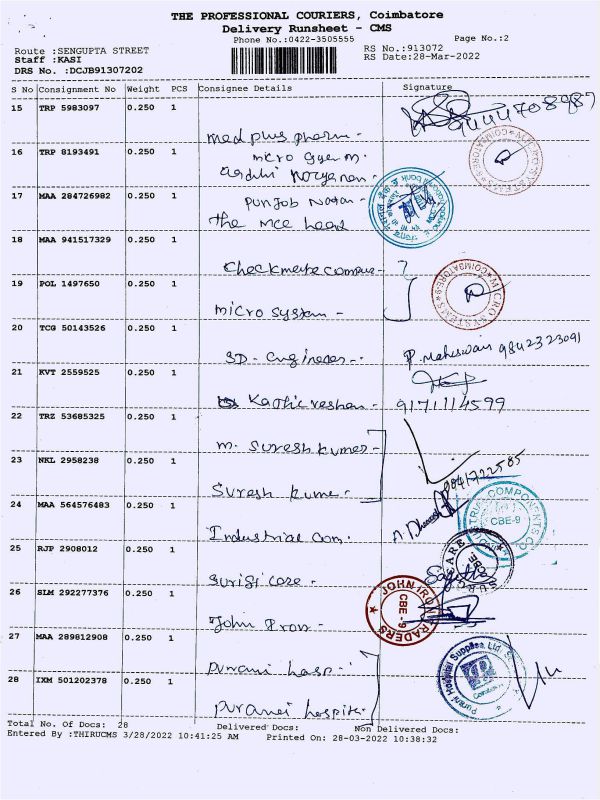 THE PROFESSIONAL COURIERS, Coimbatore
Delivery Runsheet - CMS
Phone No.:0422-3505555
Page No.:2
Route :SENGUPTA STREET
RS No.:913072
Staff :KASI
RS Date:28-Mar-2022
DRS No. :DCJB91307202
S No Consignment No Weight PCS Consignee Details Signature
15 TRP 5983097 0.250 1
med plus pharm -
16 TRP 8193491 0.250 1
micro
MICRO SYSTEMS COIMBATORE-9
17 MAA 284726982 0.250 1
punjab
the
18 MAA 941517329 0.250 1
checkmate
19 POL 1497650 0.250 1
micro system -
MICRO SYSTEMS COIMBATORE-9
20 TCG 50143526 0.250 1
SD - Engineer - P. Maheswari 9842323091
21 KVT 2559525 0.250 1
9171114599
22 TRZ 53685325 0.250 1
m. Suresh kumar -
23 NKL 2958238 0.250 1
Suresh kumar -
24 MAA 564576483 0.250 1
Industrial Com.
COMPONENTS CO. CBE-9
25 RJP 2908012 0.250 1
surgi care -
SURGI CARE CBE
26 SLM 292277376 0.250 1
John Iron -
JOHN IRON TRADERS CBE - 9
27 MAA 289812908 0.250 1
purani hosp -
Purani Hospital Supplies, Ltd.
28 IXM 501202378 0.250 1
puranei hospital
Total No. Of Docs: 28 Delivered Docs: Non Delivered Docs:
Entered By :THIRUCMS 3/28/2022 10:41:25 AM Printed On: 28-03-2022 10:38:32